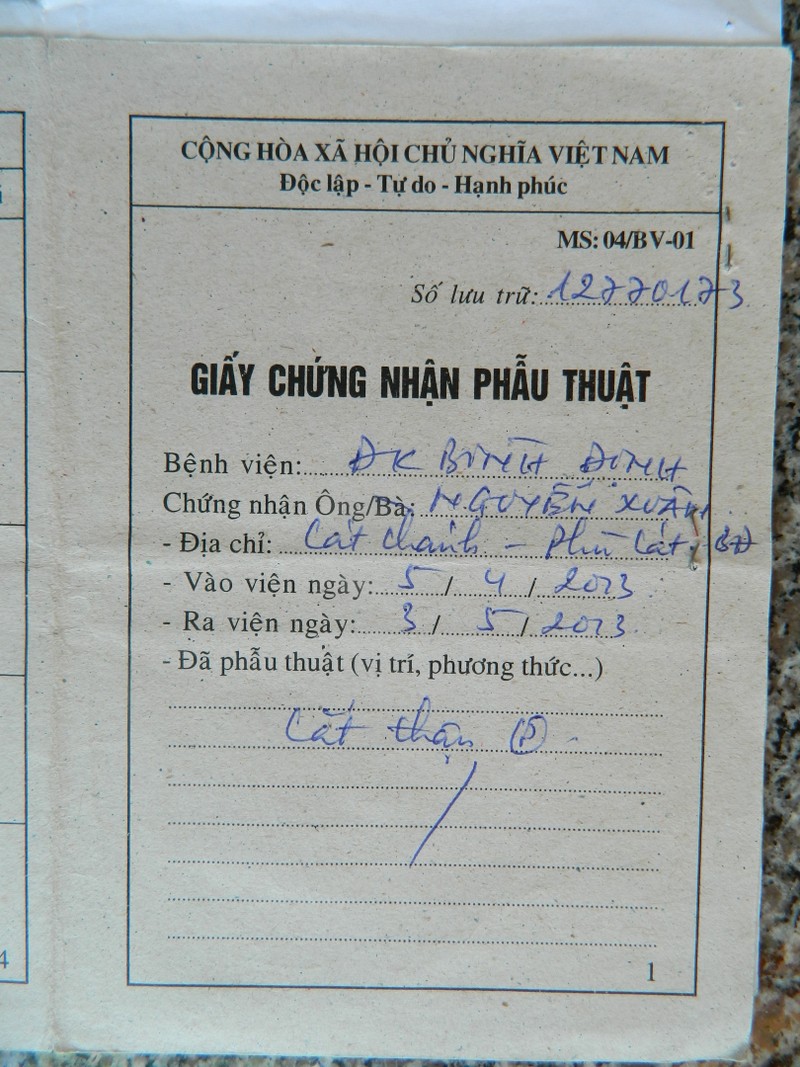 CỘNG HÒA XÃ HỘI CHỦ NGHĨA VIỆT NAM
Độc lập - Tự do - Hạnh phúc
MS: 04/BV-01
Số lưu trữ: 12770173
GIẤY CHỨNG NHẬN PHẪU THUẬT
Bệnh viện: ĐK BÌNH ĐỊNH
Chứng nhận Ông/Bà: NGUYỄN XUÂN
- Địa chỉ: Cát Chánh - Phù Cát, BĐ
- Vào viện ngày: 5 / 4 / 2013
- Ra viện ngày: 3 / 5 / 2013
- Đã phẫu thuật (vị trí, phương thức...)
Cắt thận (P) -
1
4